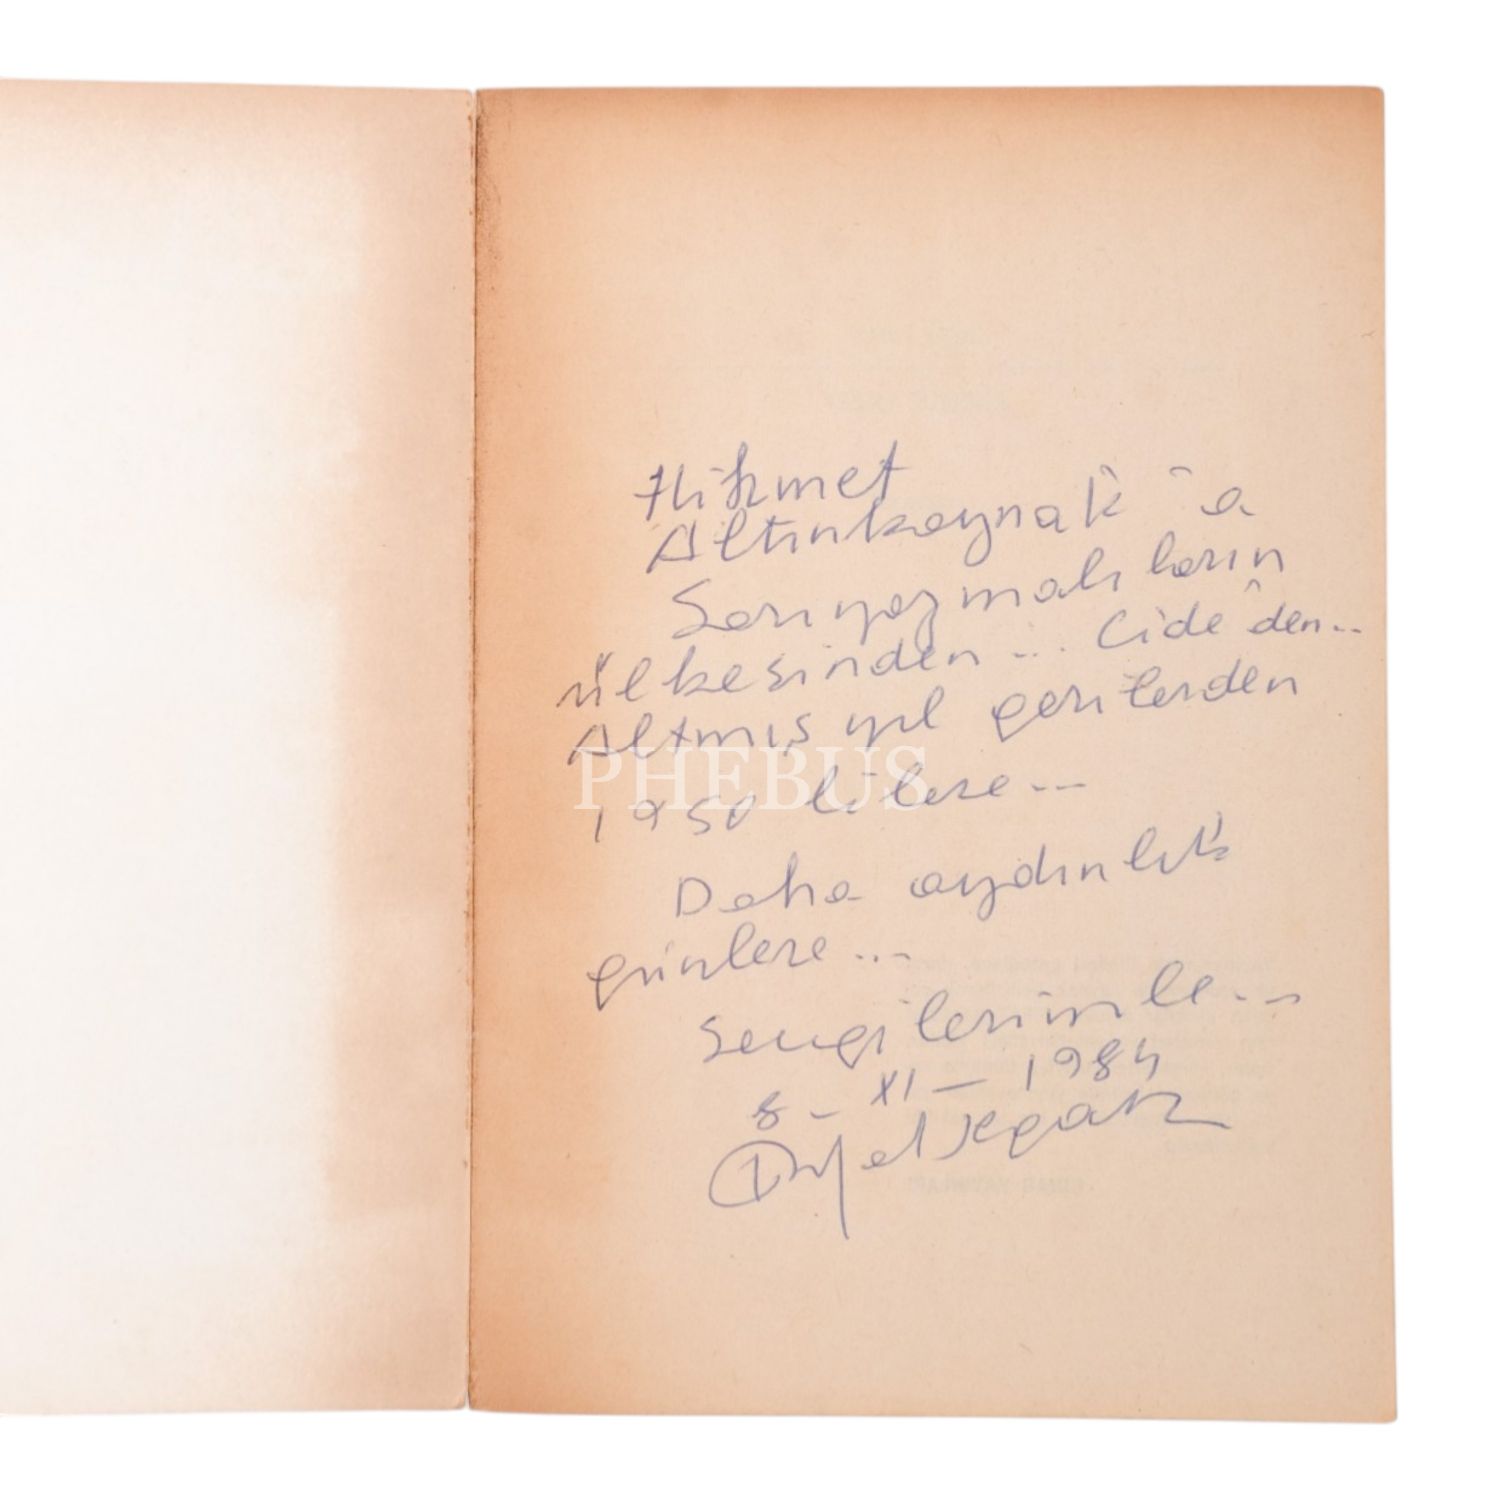 Hikmet
Altınkaynak'a
Sarıyazmalıların
ülkesinden... Cide'den...
Altmış yıl gerilerden
1950 lilere...
Daha aydınlık
günlere...
Sevgilerimle...
8 - XI - 1984
PHEBUS